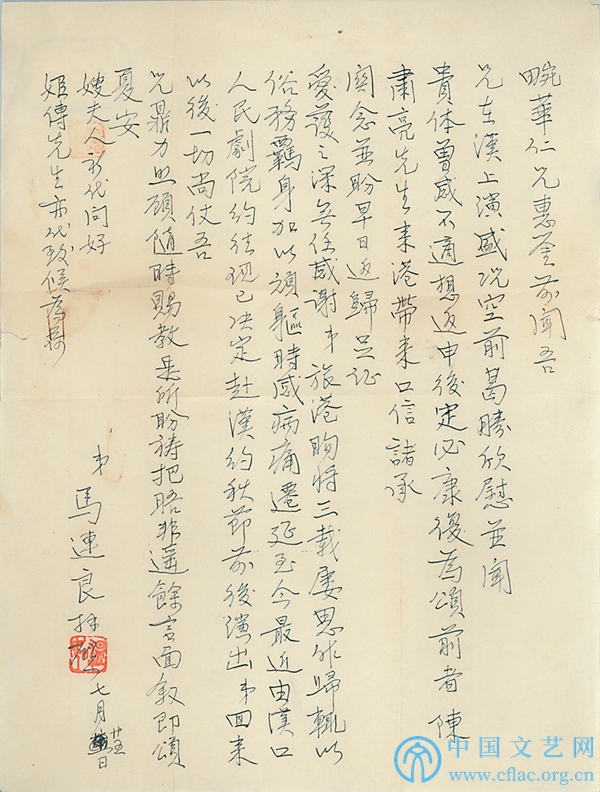 畹華仁兄惠鉴前聞吾
兄在漢上演盛况空前曷勝欣慰並聞
貴体曾感不適想返申後定必康復為頌前者陳
肅亮先生来港帶来口信諸承
関念並盼早日返歸足証
愛護之深無任感謝弟旅港晌将三載屢思北歸輒以
俗務羁身加以頑軀時感病痛遷延至今最近由漢口
人民劇院約往現已决定赴漢約秋節前後演出弟回来
以後一切尚仗吾
兄鼎力照顧隨時賜教是所盼祷把晤非遥餘言面叙即頌
夏安
嫂夫人前代问好
姬傳先生亦代致候為荷
弟 馬連良拜 七月廿五日
中国文艺网
www.cflac.org.cn